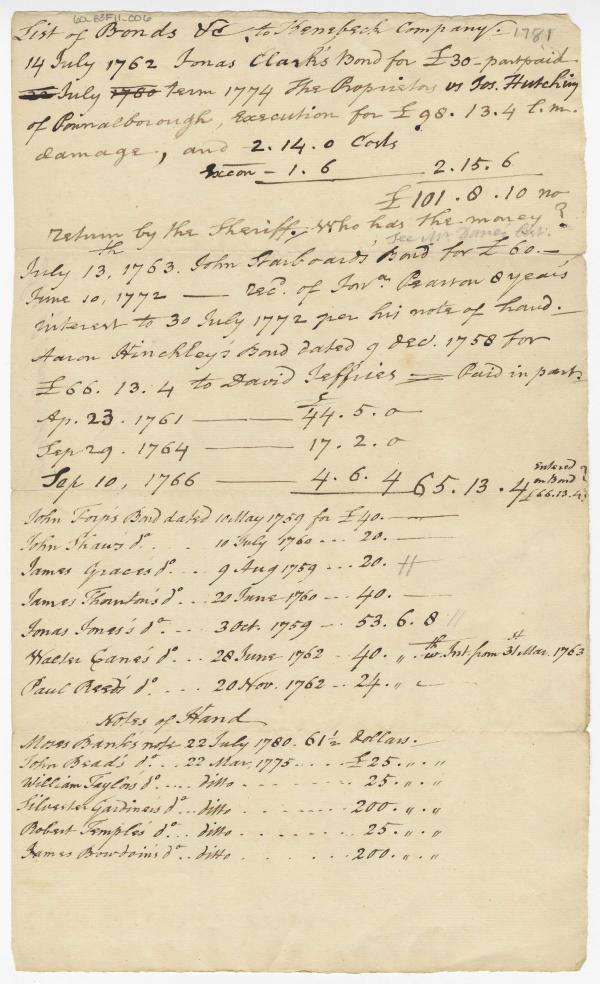 60-B3F11-006
List of Bonds &c to Kenebeck Company. 1781
14 July 1762 Jonas Clark's Bond for £30 - part paid
July 1780 term 1774 The Proprietors vs Jos. Hutchins
of Pownalborough, Execution for £98.13.4 l.m.
damage, and 2.14.0 Costs
Execon - 1.6 2.15.6
£101.8.10 no
return by the Sheriff. Who has the money?
July 13th, 1763. John Starboard's Bond for £60.—
June 10, 1772 — recd. of Jona. Pearson 8 years
interest to 30 July 1772 per his note of hand.—
Aaron Hinchley's Bond dated 9 Dec. 1758 for
£66.13.4 to David Jeffries — Paid in part.
Ap. 23. 1761 — £44.5.0
Sep 29. 1764 — 17.2.0
Sep 10, 1766 — 4.6.4 65.13.4 Entered on Bond £66.13.4?
John 's Bond dated 10 May 1759 for £40.—
John Shaw's do. .. 10 July 1760 ... 20.—
James Grace's do. ... 9 Aug 1759 ... 20. //
James Thornton's do.. 20 June 1760 ... 40.—
Jonas Jones's do. ... 3 Oct. 1759 - 53.6.8 //
Walter Cane's do. .. 28 June 1762 .. 40. „ Int from 31st Mar. 1763
Paul Reed's do. ... 20 Nov. 1762 .. 24. „
Notes of Hand
Moses Banks note 22 July 1780. 61½ Dollars.—
John Read's do. .. 22 Mar, 1775 .... £25. „ . „
William Taylor's do .... ditto ........ 25. „ . „
Silvester Gardiner's do .. ditto ........ 200. „ . „
Robert Temple's do .. ditto ........ 25. „ . „
James Bowdoin's do .. ditto ........ 200. „ . „